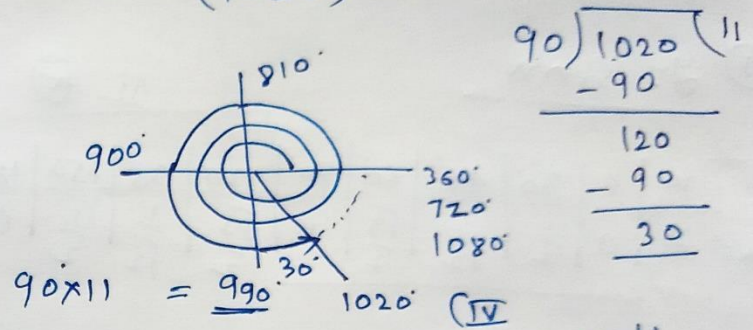 810°
900°
360°
720°
1080°
30°
90°×11 = 990°
1020° (IV
90)1020(11
-90
120
-90
30